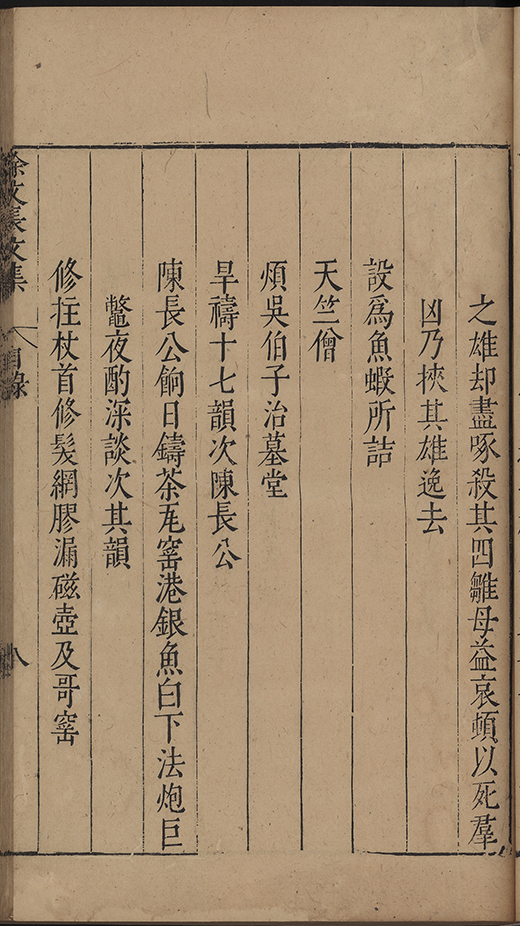 之雄却盡啄殺其四雛母益哀頓以死羣
凶乃挾其雄逸去
設爲魚蝦所詰
天竺僧
煩吳伯子治墓堂
旱禱十七韻次陳長公
陳長公餉日鑄茶瓦窰港銀魚白下法炮巨
鼈夜酌深談次其韻
修拄杖首修髮網膠漏磁壺及哥窰
徐文長文集
目錄
八